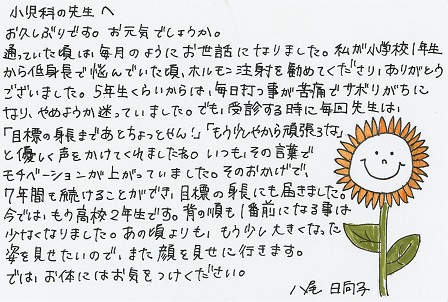 小児科の先生へ
お久しぶりです。お元気でしょうか。
通っていた頃は、毎月のようにお世話になりました。私が小学校1年生
から低身長で悩んでいた頃、ホルモン注射を勧めてくださり、ありがとう
ございました。5年生くらいからは、毎日打つ事が苦痛でサボりがちに
なり、やめようか迷っていました。でも、受診する時に毎回先生は、
「目標の身長まであとちょっとぜん!」「もう少しやから頑張ろな」
と優しく声をかけてくれましたね。いつも、その言葉で
モチベーションが上がっていました。そのおかげで、
7年間も続けることができ、目標の身長にも届きました。
今では、もう高校2年生です。背の順も1番前になる事は
少なくなりました。あの頃よりも、もう少し大きくなった
姿を見せたいので、また顔を見せに行きます。
では、お体にはお気をつけください。
八尾 日向子